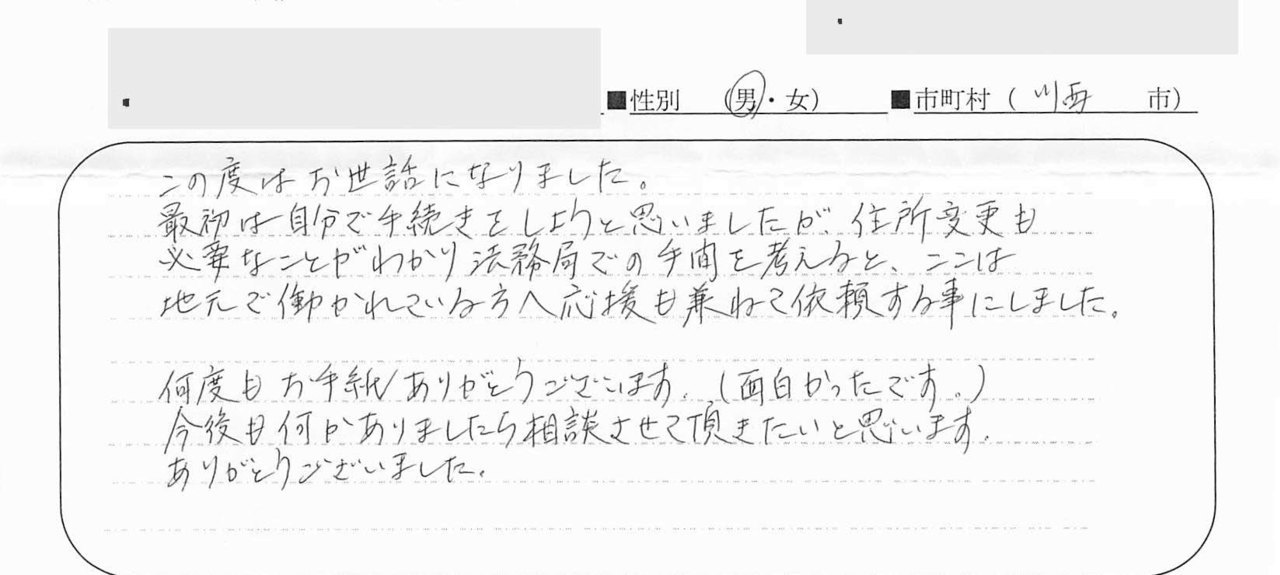 ■性別 （男・女） ■市町村（ 川西 市）
この度はお世話になりました。
最初は自分で手続きをしようと思いましたが、住所変更も
必要なことがわかり法務局での手間を考えると、ここは
地元で働かれている方へ応援も兼ねて依頼する事にしました。
何度もお手紙ありがとうございます。（面白かったです。）
今後も何かありましたら相談させて頂きたいと思います。
ありがとうございました。